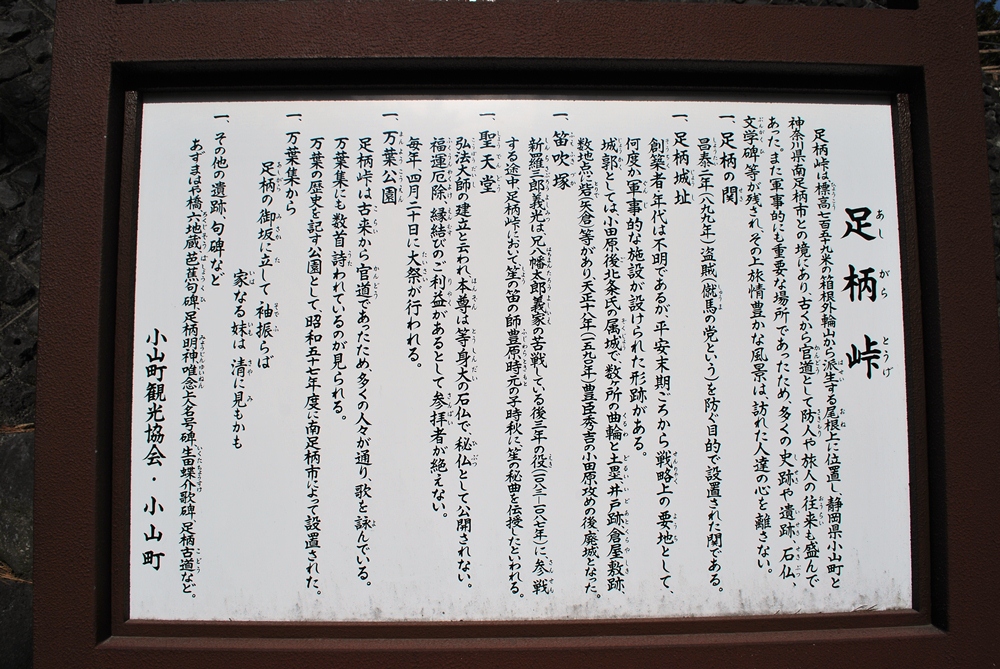 足柄峠
足柄峠は標高七百五十九米の箱根外輪山から派生する尾根上に位置し、静岡県小山町と
神奈川県南足柄市との境にあり、古くから官道として防人や旅人の往来も盛んで
あった。また軍事的にも重要な場所であったため、多くの史跡や遺跡、石仏、
文学碑等が残され、その上旅情豊かな風景は、訪れた人達の心を離さない。
一、足柄の関
昌泰二年(八九九年)盗賊(僦馬の党という)を防ぐ目的で設置された関である。
一、足柄城址
創築者・年代は不明であるが、平安末期ごろから戦略上の要地として、
何度か軍事的な施設が設けられた形跡がある。
城郭としては小田原後北条氏の属城で、数ヶ所の曲輪と土塁・井戸跡、倉屋敷跡、
数地点に砦(矢倉)等があり天正十八年(一五九〇年)豊臣秀吉の小田原攻めの後、廃城となった。
一、笛吹塚
新羅三郎義光は兄八幡太郎義家の苦戦している後三年の役(一〇八三―一〇八七年)に、参戦
する途中足柄峠において、笙の笛の師豊原時元の子時秋に笙の秘曲を伝授したといわれる。
一、聖天堂
弘法大師の建立と云われ、本尊は等身大の石仏で、秘仏として公開されない。
福運厄除、縁結びのご利益があるとして参拝者が絶えない。
毎年四月二十日に大祭が行われる。
一、万葉公園
足柄峠は古来から官道であったため、多くの人々が通り、歌を詠んでいる。
万葉集にも数首詩われているのが見られる。
万葉の歴史を記す公園として、昭和五十七年度に南足柄市によって設置された。
一、万葉集から
足柄の御坂に立して袖振らば
家なる妹は清に見もかも
一、その他の遺跡、句碑など
あずまはや橋、六地蔵、芭蕉句碑、足柄明神、唯念上人名号碑、生田蝶介歌碑、足柄古道など。
小山町観光協会・小山町